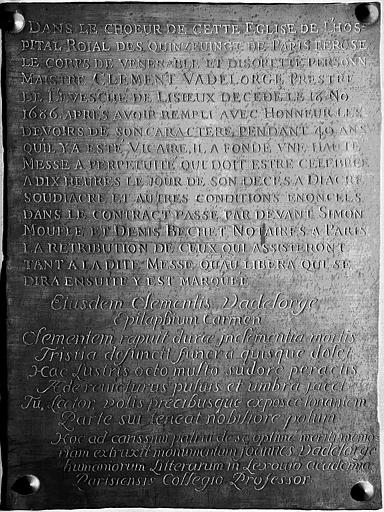 DANS LE CHOEUR DE CETTE EGLISE DE L'HOS-
PITAL ROIAL DES QUINZE UINGT DE PARIS REPOSE
LE CORPS DE VENERABLE ET DISCRETTE PERSONN
MAISTRE CLEMENT VADELORGE PRESTRE
DE L'EVESCHE DE LISIEUX DECEDE LE 16 NO
1686. APRES AVOIR REMPLI AVEC HONNEUR LES
DEVOIRS DE SON CARACTERE, PENDANT 40 ANS
QU'IL Y A ESTE VICAIRE, IL A FONDE VNE HAUTE
MESSE A PERPETUITE QUI DOIT ESTRE CELEBREE
A DIX HEURES LE JOUR DE SON DECES A DIACRE
SOUDIACRE ET AUTRES CONDITIONS ENONCEES
DANS LE CONTRACT PASSE PAR DEVANT SIMON
MOUFLE ET DENIS BECHET NOTAIRES A PARIS
LA RETRIBUTION DE CEUX QUI ASSISTERONT
TANT A LA DITE MESSE QU'AU LIBERA QUI SE
DIRA ENSUITE Y EST MARQUEE
Eiusdem Clementis Vadelorge
Epitaphium Carmen
Clementem rapuit duræ inclementia mortis
Tristia defuncti funera quisque dolet
Hoc Lustris octo multo sudore peractis
Æde reuicturus puluis et umbra jacet
Tu, Lector, votis precibusque exposce tonantem
Parte sui teneat nobiliore polum
Hoc ad carissimi patrui de se optime meriti memo-
riam extruxit monumentum joannes Vadelorge
humaniorum Litterarum in Lexouio academiæ
Parisiensis Collegio Professor